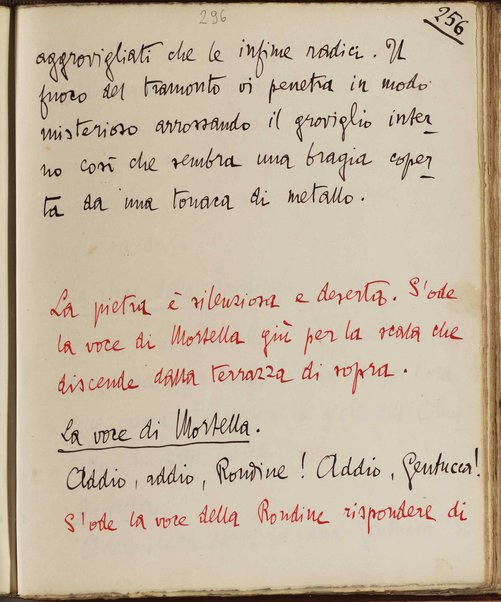 296
256
aggrovigliati che le infime radici. Il
fuoco del tramonto vi penetra in modo
misterioso arrossando il groviglio inter-
no così che sembra una bragia coper-
ta da una tonaca di metallo.
La pietra è silenziosa e deserta. S'ode
la voce di Mortella giù per la scala che
discende dalla terrazza di sopra.
La voce di Mortella.
Addio, addio, Rondine! Addio, Gentucca!
S'ode la voce della Rondine rispondere di